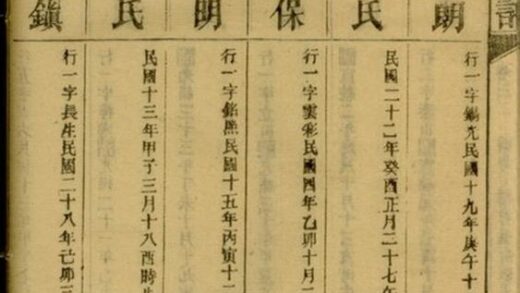 朗
行一字錫光民國十九年庚午十
民
民國二十二年癸酉正月二十七午
保
行一字雲彩民國四年乙卯十月二
明
行一字銘熙民國十五年丙寅十二
民
民國十三年甲子三月十八酉時生
鎮
行一字長生民國二十八年己卯三